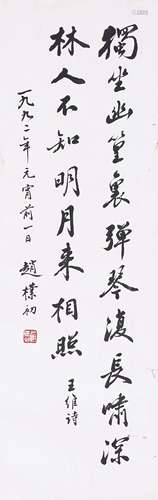 獨坐幽篁裏彈琴復長嘯深
林人不知明月来相照
王维诗
一九九二年元宵前一日
趙樸初